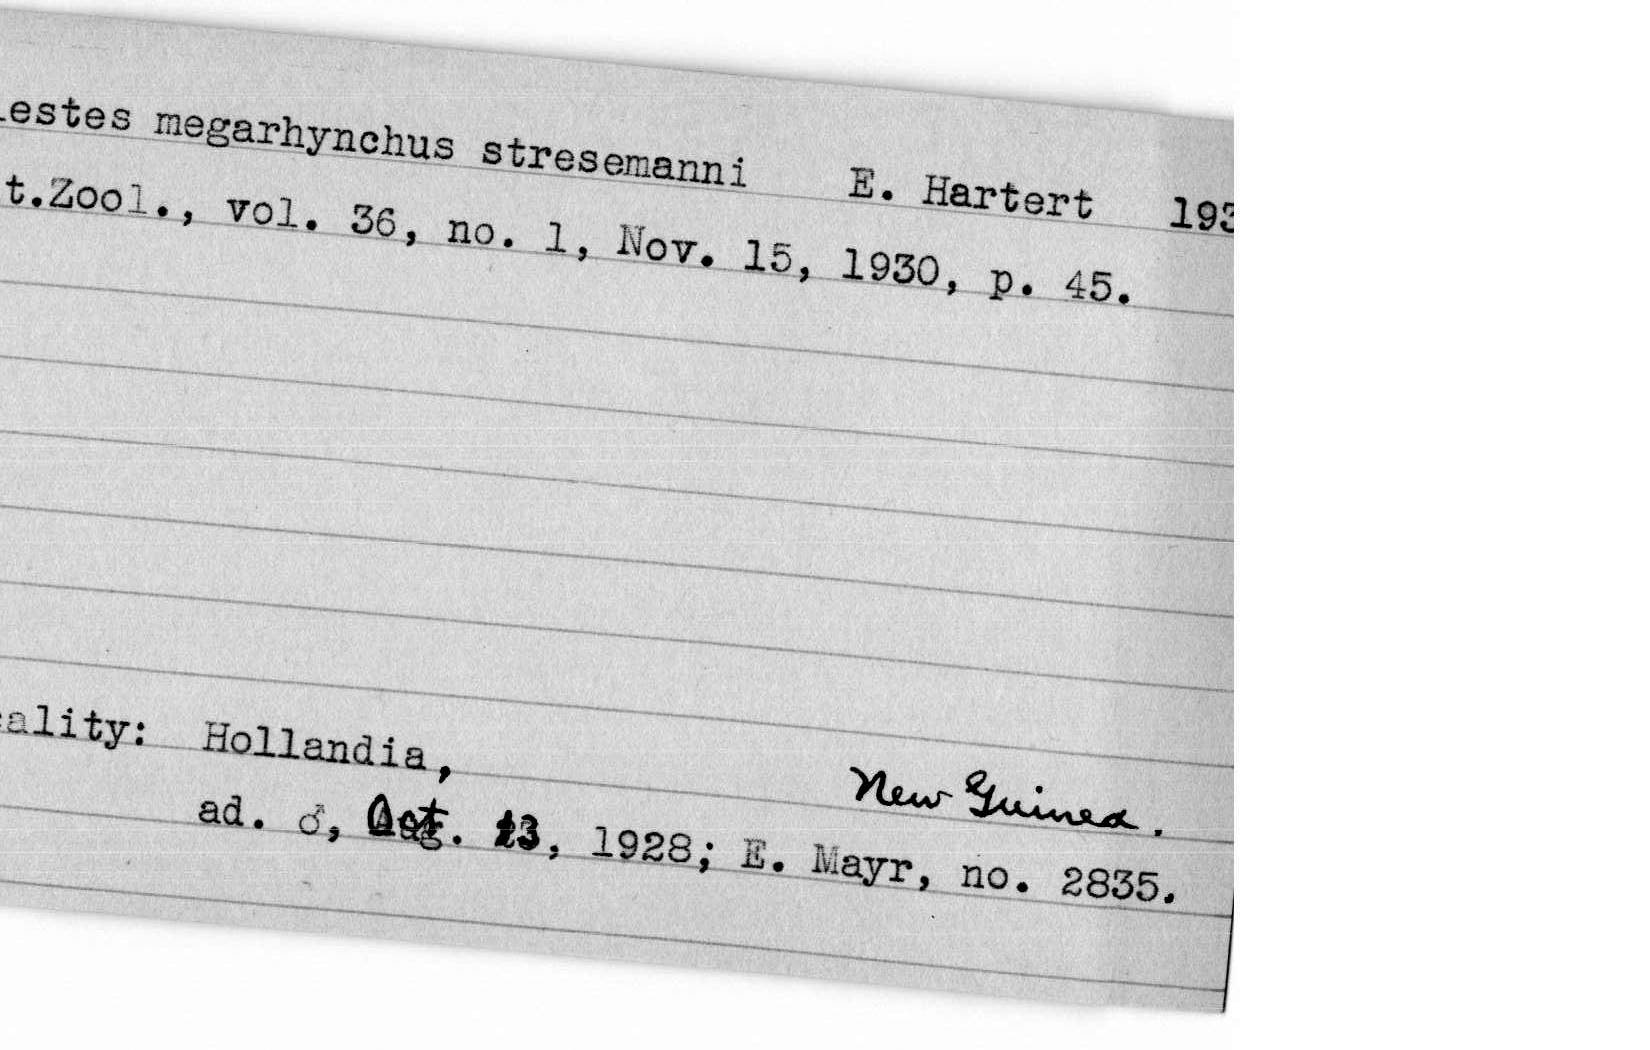 lestes megarhynchus stresemanni E. Hartert 193
t.Zool., vol. 36, no. 1, Nov. 15, 1930, p. 45.
cality: Hollandia,
New Guinea.
ad. ♂, Oct. 13, 1928; E. Mayr, no. 2835.